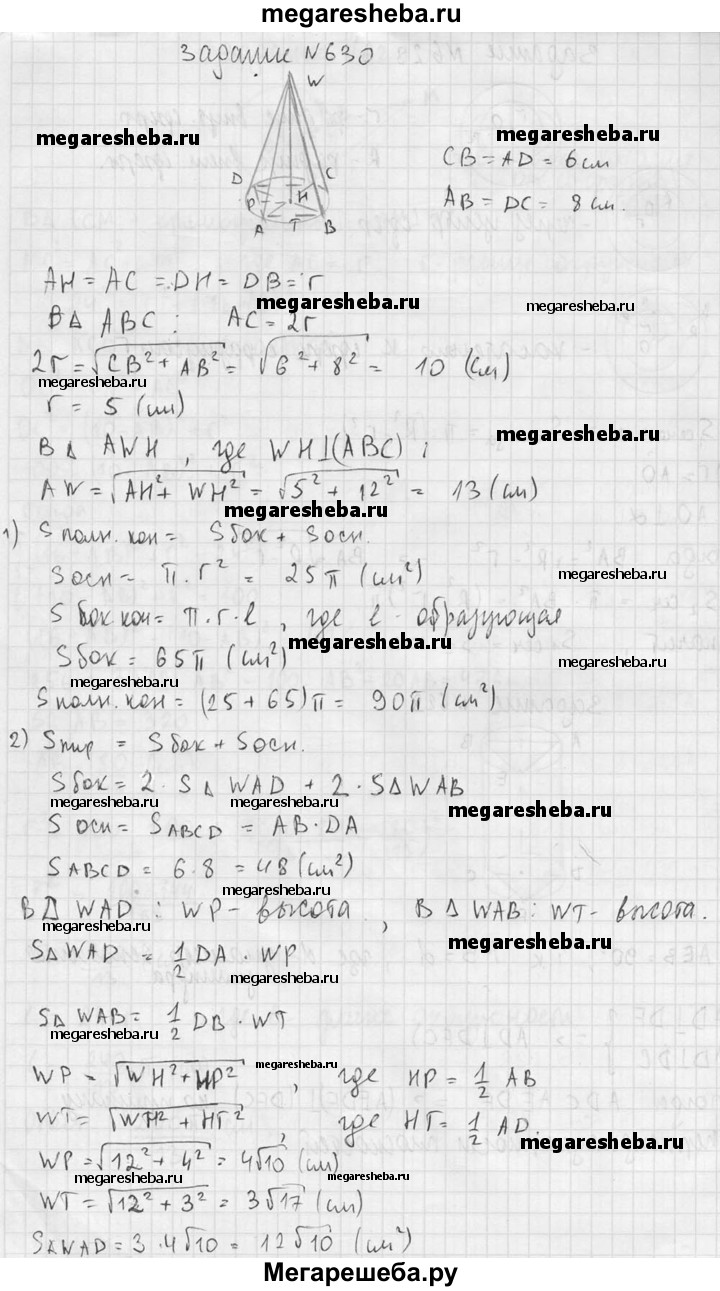 megaresheba.ru
Задание №630
W
megaresheba.ru
megaresheba.ru
CB = AD = 6 см
D C
P H
megaresheba.ru
AB = DC = 8 см.
A T B
AH = AC = DH = DB = r
megaresheba.ru
megaresheba.ru
В Δ ABC : AC = 2r
2r = √CB² + AB² = √6² + 8² = 10 (см)
megaresheba.ru
r = 5 (см)
megaresheba.ru
В Δ AWH , где WH⊥(ABC) :
AW = √AH² + WH² = √5² + 12² = 13 (см)
megaresheba.ru
1) S полн. кон = S бок + S осн.
S осн = π · r² = 25π (см²)
megaresheba.ru
S бок.кон = π · r · l , где l - образующая
megaresheba.ru
S бок = 65π (см²)
megaresheba.ru
megaresheba.ru
S полн. кон = (25 + 65)π = 90π (см²)
2) S пир = S бок + S осн.
S бок = 2 · S Δ WAD + 2 · S Δ WAB
megaresheba.ru megaresheba.ru
megaresheba.ru
S осн = S ABCD = AB · DA
S ABCD = 6 · 8 = 48 (см²)
megaresheba.ru
В Δ WAD : WP - высота , В Δ WAB : WT - высота.
megaresheba.ru
megaresheba.ru
S Δ WAD = 1/2 DA · WP
S Δ WAB = 1/2 DB · WT
megaresheba.ru
megaresheba.ru
WP = √WH² + HP² , где HP = 1/2 AB
WT = √WH² + HT² , где HT = 1/2 AD.
megaresheba.ru
WP = √12² + 4² = 4√10 (см)
megaresheba.ru
megaresheba.ru
WT = √12² + 3² = 3√17 (см)
megaresheba.ru
S Δ WAD = 3 · 4√10 = 12√10 (см²)
Мегарешеба.ру